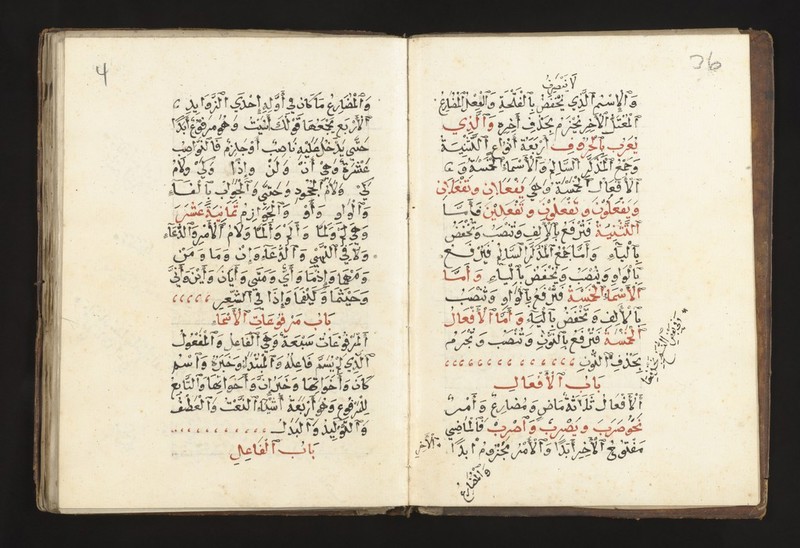 36
لا ينصرف
وَالاِسْمُ الَّذِي يُخْفَضُ بِالْفَتْحَةِ وَالْفِعْلُ الْمُضَارِعُ
الْمُعْتَلُّ الْآخِرِ يُجْزَمُ بِحَذْفِ آخِرِهِ وَالَّذِي
يُعْرَبُ بِالْحُرُوفِ أَرْبَعَةُ أَنْوَاعٍ التَّثْنِيَةُ
وَجَمْعُ الْمُذَكَّرِ السَّالِمِ وَالْأَسْمَاءُ الْخَمْسَةُ وَ
الْأَفْعَالُ الْخَمْسَةُ وَهِيَ يَفْعَلَانِ وَتَفْعَلَانِ
وَيَفْعَلُونَ وَتَفْعَلُونَ وَتَفْعَلِينَ فَأَمَّا
التَّثْنِيَةُ فَتُرْفَعُ بِالْأَلِفِ وَتُنْصَبُ وَتُخْفَضُ
بِالْيَاءِ وَأَمَّا جَمْعُ الْمُذَكَّرِ السَّالِمِ فَتُرْفَعُ
بِالْوَاوِ وَيُنْصَبُ وَيُخْفَضُ بِالْيَاءِ وَأَمَّا
الْأَسْمَاءُ الْخَمْسَةُ فَتُرْفَعُ بِالْوَاوِ وَتُنْصَبُ
بِالْأَلِفِ وَتُخْفَضُ بِالْيَاءِ وَأَمَّا الْأَفْعَالُ
الْخَمْسَةُ فَتُرْفَعُ بِالنُّونِ وَتُنْصَبُ وَتُجْزَمُ
بِحَذْفِ النُّونِ
بَابُ الْأَفْعَالِ
الْأَفْعَالُ ثَلَاثَةٌ مَاضٍ وَمُضَارِعٌ وَأَمْرٌ
نَحْوُ ضَرَبَ وَيَضْرِبُ وَاضْرِبْ فَالْمَاضِي
مَفْتُوحُ الْآخِرِ أَبَدًا وَالْأَمْرُ مَجْزُومٌ أَبَدًا
وَالْمُضَارِعُ
4
وَالْمُضَارِعُ مَا كَانَ فِي أَوَّلِهِ إِحْدَى الزَّوَايِدِ
الْأَرْبَعِ يَجْمَعُهَا قَوْلُكَ أَنَيْتُ وَهُوَ مَرْفُوعٌ أَبَدًا
حَتَّى يَدْخُلَ عَلَيْهِ نَاصِبٌ أَوْ جَازِمٌ فَالنَّوَاصِبُ
عَشَرَةٌ وَهِيَ أَنْ وَلَنْ وَإِذًا وَكَيْ وَلَامُ
كَيْ وَلَامُ الْجُحُودِ وَحَتَّى وَالْجَوَابُ بِالْفَاءِ
وَالْوَاوِ وَأَوْ وَالْجَوَازِمُ ثَمَانِيَةَ عَشَرَ
وَهِيَ لَمْ وَلَمَّا وَأَلَمْ وَأَلَمَّا وَلَامُ الْأَمْرِ وَالدُّعَاءِ
وَلَا فِي النَّهْيِ وَالدُّعَاءِ وَإِنْ وَمَا وَمَنْ
وَمَهْمَا وَإِذْمَا وَأَيٌّ وَمَتَى وَأَيَّانَ وَأَيْنَ وَأَنَّى
وَحَيْثُمَا وَكَيْفَمَا وَإِذَا فِي الشِّعْرِ
بَابُ مَرْفُوعَاتِ الْأَسْمَاءِ
الْمَرْفُوعَاتُ سَبْعَةٌ وَهِيَ الْفَاعِلُ وَالْمَفْعُولُ
الَّذِي لَمْ يُسَمَّ فَاعِلُهُ وَالْمُبْتَدَأُ وَخَبَرُهُ وَاسْمُ
كَانَ وَأَخَوَاتِهَا وَخَبَرُ إِنَّ وَأَخَوَاتِهَا وَالتَّابِعُ
لِلْمَرْفُوعِ وَهِيَ أَرْبَعَةُ أَشْيَاءَ النَّعْتُ وَالْعَطْفُ
وَالتَّوْكِيدُ وَالْبَدَلُ
بَابُ الْفَاعِلِ